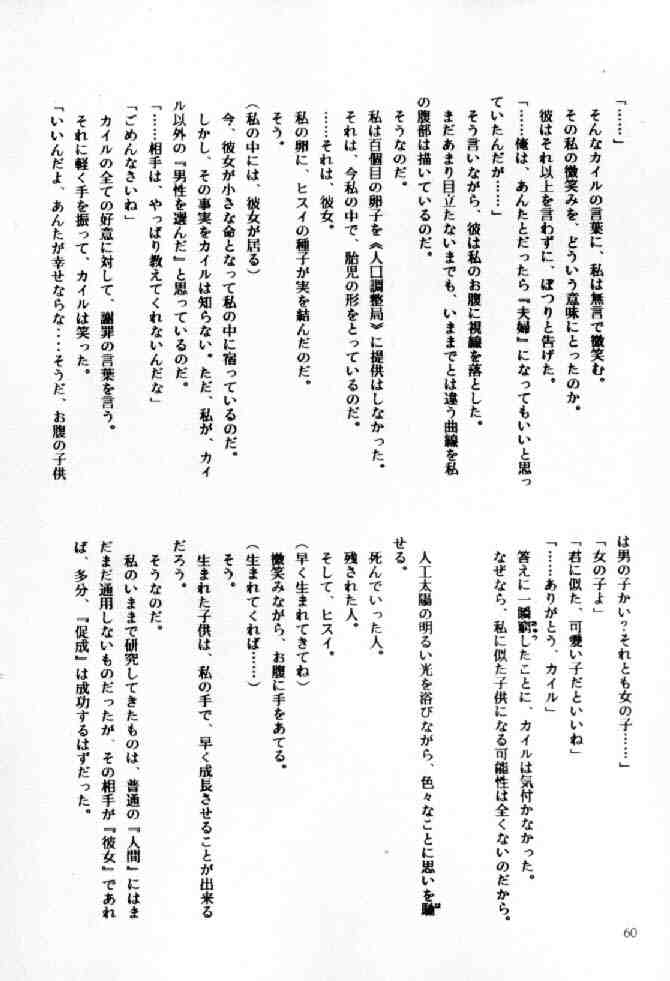 「……」
　そんなカイルの言葉に、私は無言で微笑む。
　その私の微笑みを、どういう意味にとったのか。
　彼はそれ以上を言わずに、ぽつりと告げた。
「……俺は、あんたとだったら『夫婦』になってもいいと思っ
ていたんだが……」
　そう言いながら、彼は私のお腹に視線を落とした。
　まだあまり目立たないまでも、いままでとは違う曲線を私
の腹部は描いているのだ。
　そうなのだ。
　私は百個目の卵子を《人口調整局》に提供はしなかった。
　それは、今私の中で、胎児の形をとっているのだ。
　……それは、彼女。
　私の卵に、ヒスイの種子が実を結んだのだ。
　そう。
（私の中には、彼女が居る）
　今、彼女が小さな命となって私の中に宿っているのだ。
　しかし、その事実をカイルは知らない。ただ、私が、カイ
ル以外の『男性を選んだ』と思っているのだ。
「……相手は、やっぱり教えてくれないんだな」
「ごめんなさいね」
　カイルの全ての好意に対して、謝罪の言葉を言う。
　それに軽く手を振って、カイルは笑った。
「いいんだよ、あんたが幸せならな……そうだ、お腹の子供
は男の子かい？それとも女の子……」
「女の子よ」
「君に似た、可愛い子だといいね」
「……ありがとう、カイル」
　答えに一瞬窮したことに、カイルは気付かなかった。
　なぜなら、私に似た子供になる可能性は全くないのだから。
　人工太陽の明るい光を浴びながら、色々なことに思いを馳
せる。
　死んでいった人。
　残された人。
　そして、ヒスイ。
（早く生まれてきてね）
　微笑みながら、お腹に手をあてる。
（生まれてくれば……）
　そう。
　生まれた子供は、私の手で、早く成長させることが出来る
だろう。
　そうなのだ。
　私のいままで研究してきたものは、普通の『人間』にはま
だまだ通用しないものだったが、その相手が『彼女』であれ
ば、多分、『促成』は成功するはずだった。
60